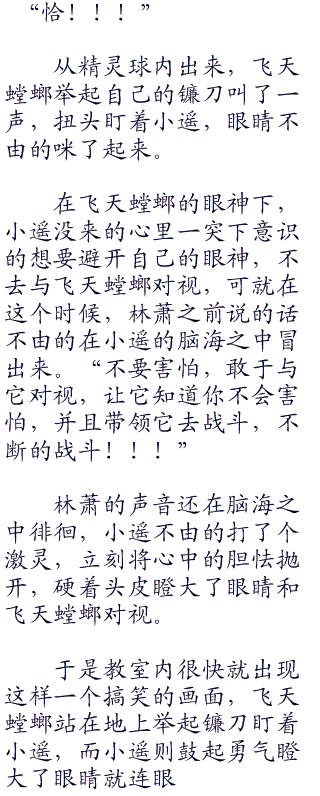 “恰！！！”
从精灵球内出来，飞天
螳螂举起自己的镰刀叫了一
声，扭头盯着小遥，眼睛不
由的咪了起来。
在飞天螳螂的眼神下，
小遥没来的心里一突下意识
的想要避开自己的眼神，不
去与飞天螳螂对视，可就在
这个时候，林萧之前说的话
不由的在小遥的脑海之中冒
出来。“不要害怕，敢于与
它对视，让它知道你不会害
怕，并且带领它去战斗，不
断的战斗！！！”
林萧的声音还在脑海之
中徘徊，小遥不由的打了个
激灵，立刻将心中的胆怯抛
开，硬着头皮瞪大了眼睛和
飞天螳螂对视。
于是教室内很快就出现
这样一个搞笑的画面，飞天
螳螂站在地上举起镰刀盯着
小遥，而小遥则鼓起勇气瞪
大了眼睛就连眼